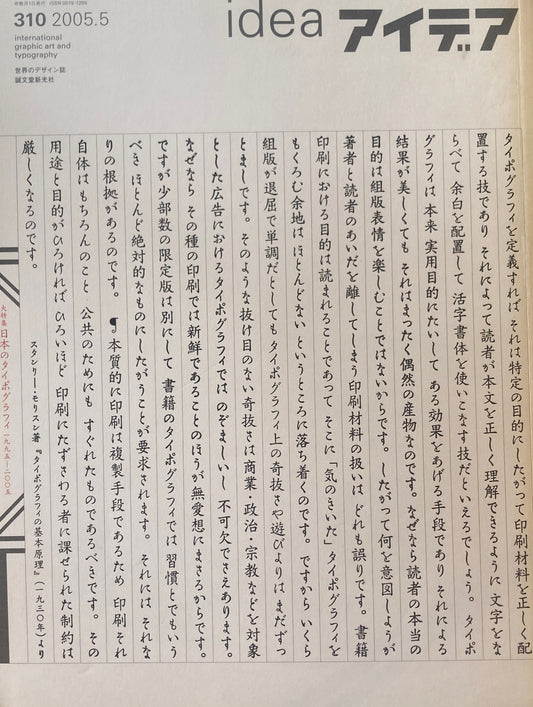 年数月1日発行 ISSN 0019-1299
310 2005.5
international
graphic art and
typography
世界のデザイン誌
誠文堂新光社
idea アイデア
タイポグラフィを定義すれば それは特定の目的にしたがって印刷材料を正しく配
置する技であり それによって読者が本文を正しく理解できるように 文字をな
らべて 余白を配置して 活字書体を使いこなす技だといえるでしょう。 タイポ
グラフィは 本来 実用目的にたいして ある効果をあげる手段であり それによる
結果が美しくても それはまったく偶然の産物なのです。なぜなら読者の本当の
目的は組版表情を楽しむことではないからです。 したがって何を意図しようが
著者と読者のあいだを離してしまう印刷材料の扱いは どれも誤りです。 書籍
印刷における目的は読まれることであって そこに「気のきいた」タイポグラフィを
もくろむ余地は ほとんどない というところに落ち着くのです。ですから いくら
組版が退屈で単調だとしてもタイポグラフィ上の奇抜さや遊びよりは まだずっ
とましです。そのような抜け目のない奇抜さは商業・政治・宗教などを対象
とした広告におけるタイポグラフィでは のぞましいし 不可欠でさえあります。
なぜなら その種の印刷では新鮮であることのほうが無愛想にまさるからです。
ですが少部数の限定版は別にして 書籍のタイポグラフィでは 習慣とでもいう
べき ほとんど絶対的なものにしたがうことが要求されます。 それには それな
りの根拠があるのです。 ¶本質的に印刷は複製手段であるため 印刷それ
自体はもちろんのこと 公共のためにも すぐれたものであるべきです。 その
用途と目的がひろければ ひろいほど 印刷にたずさわる者に課せられた制約は
厳しくなるのです。
スタンリー・モリスン著『タイポグラフィの基本原理』(一九三〇年)より
大特集 日本のタイポグラフィ 一九九五―二〇〇五